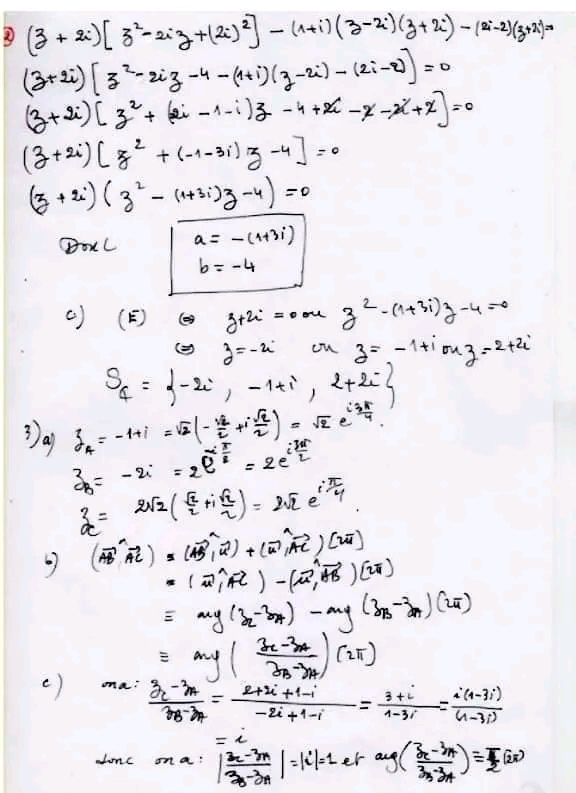 2) (z + 2i)[z² - 2iz + (2i)²] - (1+i)(z-2i)(z+2i) - (2i-2)(z+2i) = 0
(z+2i)[z² - 2iz - 4 - (1+i)(z-2i) - (2i-2)] = 0
(z+2i)[z² + (2i - 1 - i)z - 4 + 2i - 2 - 2i + 2] = 0
(z+2i)[z² + (-1-3i)z - 4] = 0
(z + 2i)(z² - (1+3i)z - 4) = 0
Donc
a = -(1+3i)
b = -4
c) (E) ⇔ z+2i = 0 ou z² - (1+3i)z - 4 = 0
⇔ z = -2i ou z = -1+i ou z = 2+2i
S_ℂ = {-2i, -1+i, 2+2i}
3) a) z_A = -1+i = √2(-√2/2 + i√2/2) = √2 e^{i3π/4}.
z_B = -2i = 2e^{-iπ/2} = 2e^{i3π/2}
z_C = 2√2(√2/2 + i√2/2) = 2√2 e^{iπ/4}.
b) (AB, AC) ≡ (AB, u) + (u, AC) [2π]
≡ (u, AC) - (u, AB) [2π]
≡ arg(z_C - z_A) - arg(z_B - z_A) (2π)
≡ arg((z_C - z_A)/(z_B - z_A)) [2π]
c) on a : (z_C - z_A)/(z_B - z_A) = (2+2i+1-i)/(-2i+1-i) = (3+i)/(1-3i) = i(1-3i)/(1-3i)
= i
donc on a : |(z_C - z_A)/(z_B - z_A)| = |i| = 1 et arg((z_C - z_A)/(z_B - z_A)) ≡ π/2 (2π)